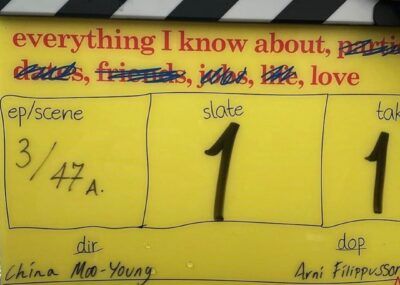 everything I know about, parti
dates, friends, jobs, life, love
ep/scene slate tak
3/47A. 1 1
dir dop
China Moo-Young Arni Filippusson